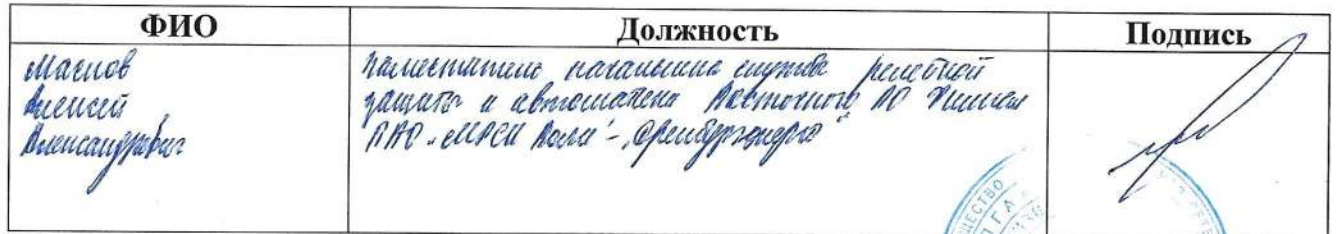 ФИО Должность Подпись
Маслов
Алексей
Александрович
Заместитель начальника службы релейной
защиты и автоматики Восточного ПО филиал
ПАО "МРСК Волги" - "Оренбургэнерго"